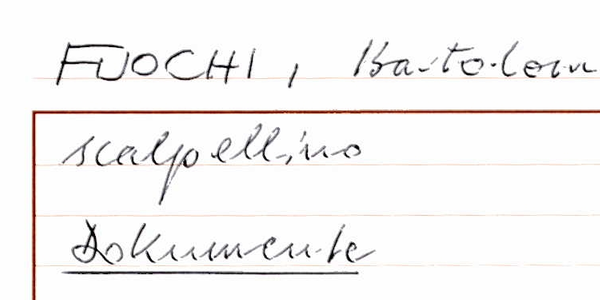 FUOCHI, Bartolom
scalpellino
Dokumente